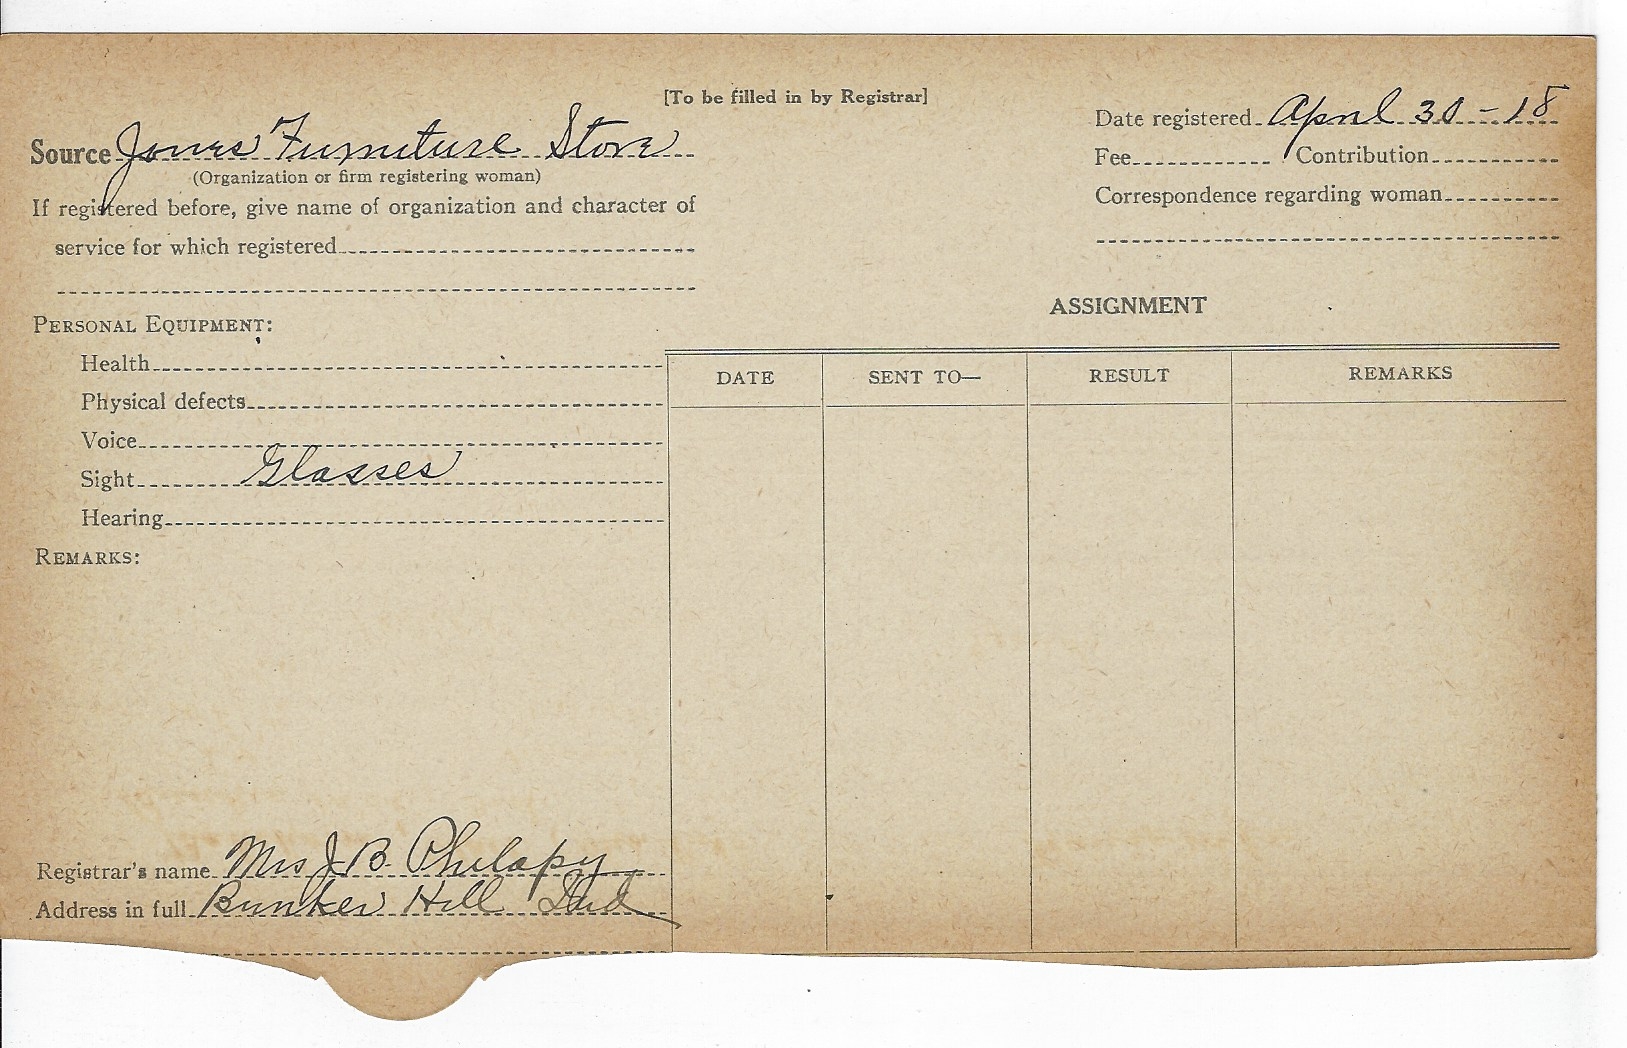 [To be filled in by Registrar]
Source Jones' Furniture Store
(Organization or firm registering woman)
If registered before, give name of organization and character of
service for which registered
Date registered April 30-18
Fee Contribution
Correspondence regarding woman
PERSONAL EQUIPMENT:
Health
Physical defects
Voice
Sight Glasses
Hearing
REMARKS:
Registrar's name Mrs J B Philapy
Address in full Bunker Hill Ind
ASSIGNMENT
DATE SENT TO— RESULT REMARKS